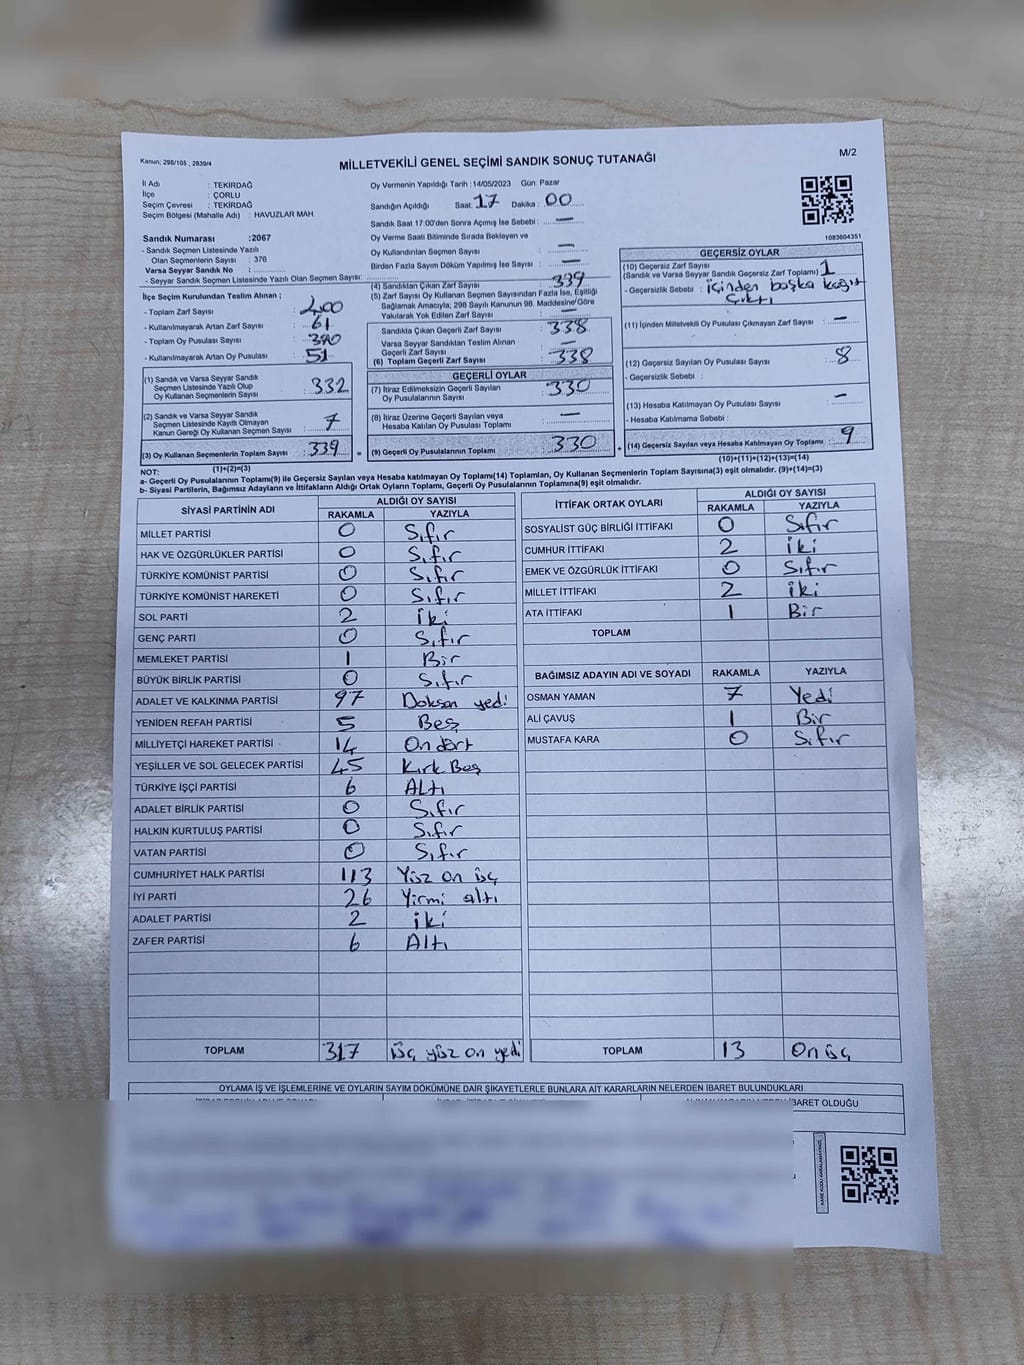 Kanun; 298/105 , 2839/4
MİLLETVEKİLİ GENEL SEÇİMİ SANDIK SONUÇ TUTANAĞI
M/2
İl Adı : TEKİRDAĞ
İlçe : ÇORLU
Seçim Çevresi : TEKİRDAĞ
Seçim Bölgesi (Mahalle Adı) : HAVUZLAR MAH.
Sandık Numarası :2067
- Sandık Seçmen Listesinde Yazılı
Olan Seçmenlerin Sayısı : 376
Varsa Seyyar Sandık No :
- Seyyar Sandık Seçmen Listesinde Yazılı Olan Seçmen Sayısı:
İlçe Seçim Kurulundan Teslim Alınan ;
- Toplam Zarf Sayısı : 400
- Kullanılmayarak Artan Zarf Sayısı : 61
- Toplam Oy Pusulası : 390
- Kullanılmayarak Artan Oy Pusulası : 51
(1) Sandık ve Varsa Seyyar Sandık
Seçmen Listesinde Yazılı Olup
Oy Kullanan Seçmenlerin Sayısı : 332
(2) Sandık ve Varsa Seyyar Sandık
Seçmen Listesinde Kayıtlı Olmayan
Kanun Gereği Oy Kullanan Seçmen Sayısı : 7
(3) Oy Kullanan Seçmenlerin Toplam Sayısı : 339
(1)+(2)=(3)
Oy Vermenin Yapıldığı Tarih : 14/05/2023 Gün: Pazar
Sandığın Açıldığı Saat: 17 Dakika : 00
Sandık Saat 17:00'den Sonra Açımış İse Sebebi : —
Oy Verme Saati Bitiminde Sırada Bekleyen ve
Oy Kullandırılan Seçmen Sayısı : —
Birden Fazla Sayım Döküm Yapılmış İse Sayısı : —
(4) Sandıktan Çıkan Zarf Sayısı : 339
(5) Zarf Sayısı Oy Kullanan Seçmen Sayısından Fazla İse, Eşitliği
Sağlamak Amacıyla, 298 Sayılı Kanunun 98. Maddesine Göre
Yakılarak Yok Edilen Zarf Sayısı : —
Sandıkta Çıkan Geçerli Zarf Sayısı : 338
Varsa Seyyar Sandıktan Teslim Alınan
Geçerli Zarf Sayısı : —
(6) Toplam Geçerli Zarf Sayısı : 338
GEÇERLİ OYLAR
(7) İtiraz Edilmeksizin Geçerli Sayılan
Oy Pusulalarının Sayısı : 330
(8) İtiraz Üzerine Geçerli Sayılan veya
Hesaba Katılan Oy Pusulası Toplamı : —
= (9) Geçerli Oy Pusulalarının Toplamı : 330 +
1083604351
GEÇERSİZ OYLAR
(10) Geçersiz Zarf Sayısı
(Sandık ve Varsa Seyyar Sandık Geçersiz Zarf Toplamı) : 1
- Geçersizlik Sebebi : içinden başka kağıt
çıktı
(11) İçinden Milletvekili Oy Pusulası Çıkmayan Zarf Sayısı : —
(12) Geçersiz Sayılan Oy Pusulası Sayısı : 8
- Geçersizlik Sebebi :
(13) Hesaba Katılmayan Oy Pusulası Sayısı : —
- Hesaba Katılmama Sebebi :
(14) Geçersiz Sayılan veya Hesaba Katılmayan Oy Toplamı : 9
(10)+(11)+(12)+(13)=(14)
NOT:
a- Geçerli Oy Pusulalarının Toplamı(9) ile Geçersiz Sayılan veya Hesaba Katılmayan Oy Toplamı(14) Toplamları, Oy Kullanan Seçmenlerin Toplam Sayısına(3) eşit olmalıdır. (9)+(14)=(3)
b- Siyasi Partilerin, Bağımsız Adayların ve İttifakların Aldığı Ortak Oyların Toplamı, Geçerli Oy Pusulalarının Toplamına(9) eşit olmalıdır.
SİYASİ PARTİNİN ADI ALDIĞI OY SAYISI
RAKAMLA YAZIYLA
MİLLET PARTİSİ 0 Sıfır
HAK VE ÖZGÜRLÜKLER PARTİSİ 0 Sıfır
TÜRKİYE KOMÜNİST PARTİSİ 0 Sıfır
TÜRKİYE KOMÜNİST HAREKETİ 0 Sıfır
SOL PARTİ 2 iki
GENÇ PARTİ 0 Sıfır
MEMLEKET PARTİSİ 1 Bir
BÜYÜK BİRLİK PARTİSİ 0 Sıfır
ADALET VE KALKINMA PARTİSİ 97 Doksan yedi
YENİDEN REFAH PARTİSİ 5 Beş
MİLLİYETÇİ HAREKET PARTİSİ 14 On dört
YEŞİLLER VE SOL GELECEK PARTİSİ 45 Kırk Beş
TÜRKİYE İŞÇİ PARTİSİ 6 Altı
ADALET BİRLİK PARTİSİ 0 Sıfır
HALKIN KURTULUŞ PARTİSİ 0 Sıfır
VATAN PARTİSİ 0 Sıfır
CUMHURİYET HALK PARTİSİ 113 Yüz on üç
İYİ PARTİ 26 Yirmi altı
ADALET PARTİSİ 2 iki
ZAFER PARTİSİ 6 Altı
TOPLAM 317 üç yüz on yedi
İTTİFAK ORTAK OYLARI ALDIĞI OY SAYISI
RAKAMLA YAZIYLA
SOSYALİST GÜÇ BİRLİĞİ İTTİFAKI 0 Sıfır
CUMHUR İTTİFAKI 2 iki
EMEK VE ÖZGÜRLÜK İTTİFAKI 0 Sıfır
MİLLET İTTİFAKI 2 iki
ATA İTTİFAKI 1 Bir
TOPLAM
BAĞIMSIZ ADAYIN ADI VE SOYADI RAKAMLA YAZIYLA
OSMAN YAMAN 7 Yedi
ALİ ÇAVUŞ 1 Bir
MUSTAFA KARA 0 Sıfır
TOPLAM 13 On üç
OYLAMA İŞ VE İŞLEMLERİNE VE OYLARIN SAYIM DÖKÜMÜNE DAİR ŞİKAYETLERLE BUNLARA AİT KARARLARIN NELERDEN İBARET BULUNDUKLARI
İBARET OLDUĞU